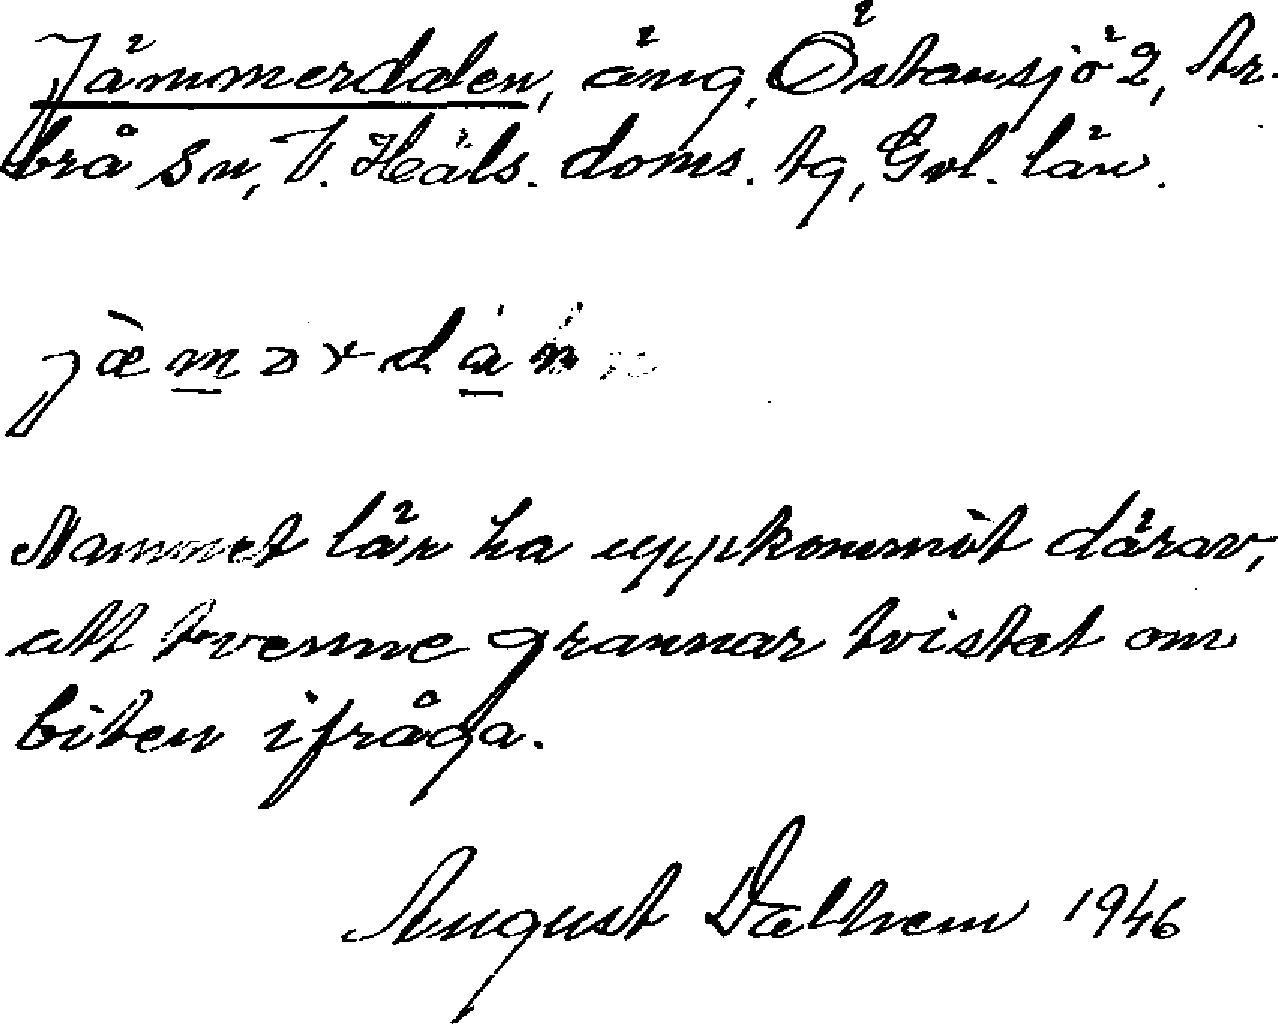 Jämmerdalen, äng, Östansjö 2, Ar-
brå sn, V. Häls. doms. tg, Gvl. län.
jæ̀mərdán
Namnet lär ha uppkommit därav,
att tvenne grannar tvistat om
biten ifråga.
August Dalhem 1946